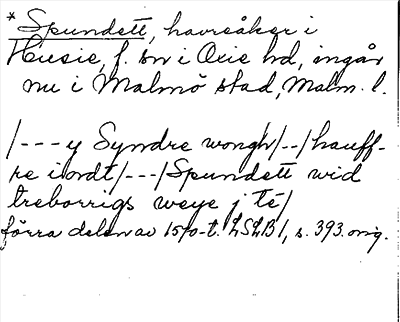 * Spundett, havreåker i
Husie, f. sn i Oxie hd, ingår
nu i Malmö stad, Malm. l.
/--- y Syndre wongh/--/hauff-
re iordt/---/Spundett wid
treborrigs weye j té/
förra delen av 1570-t. LSLB 1, s. 393. orig.